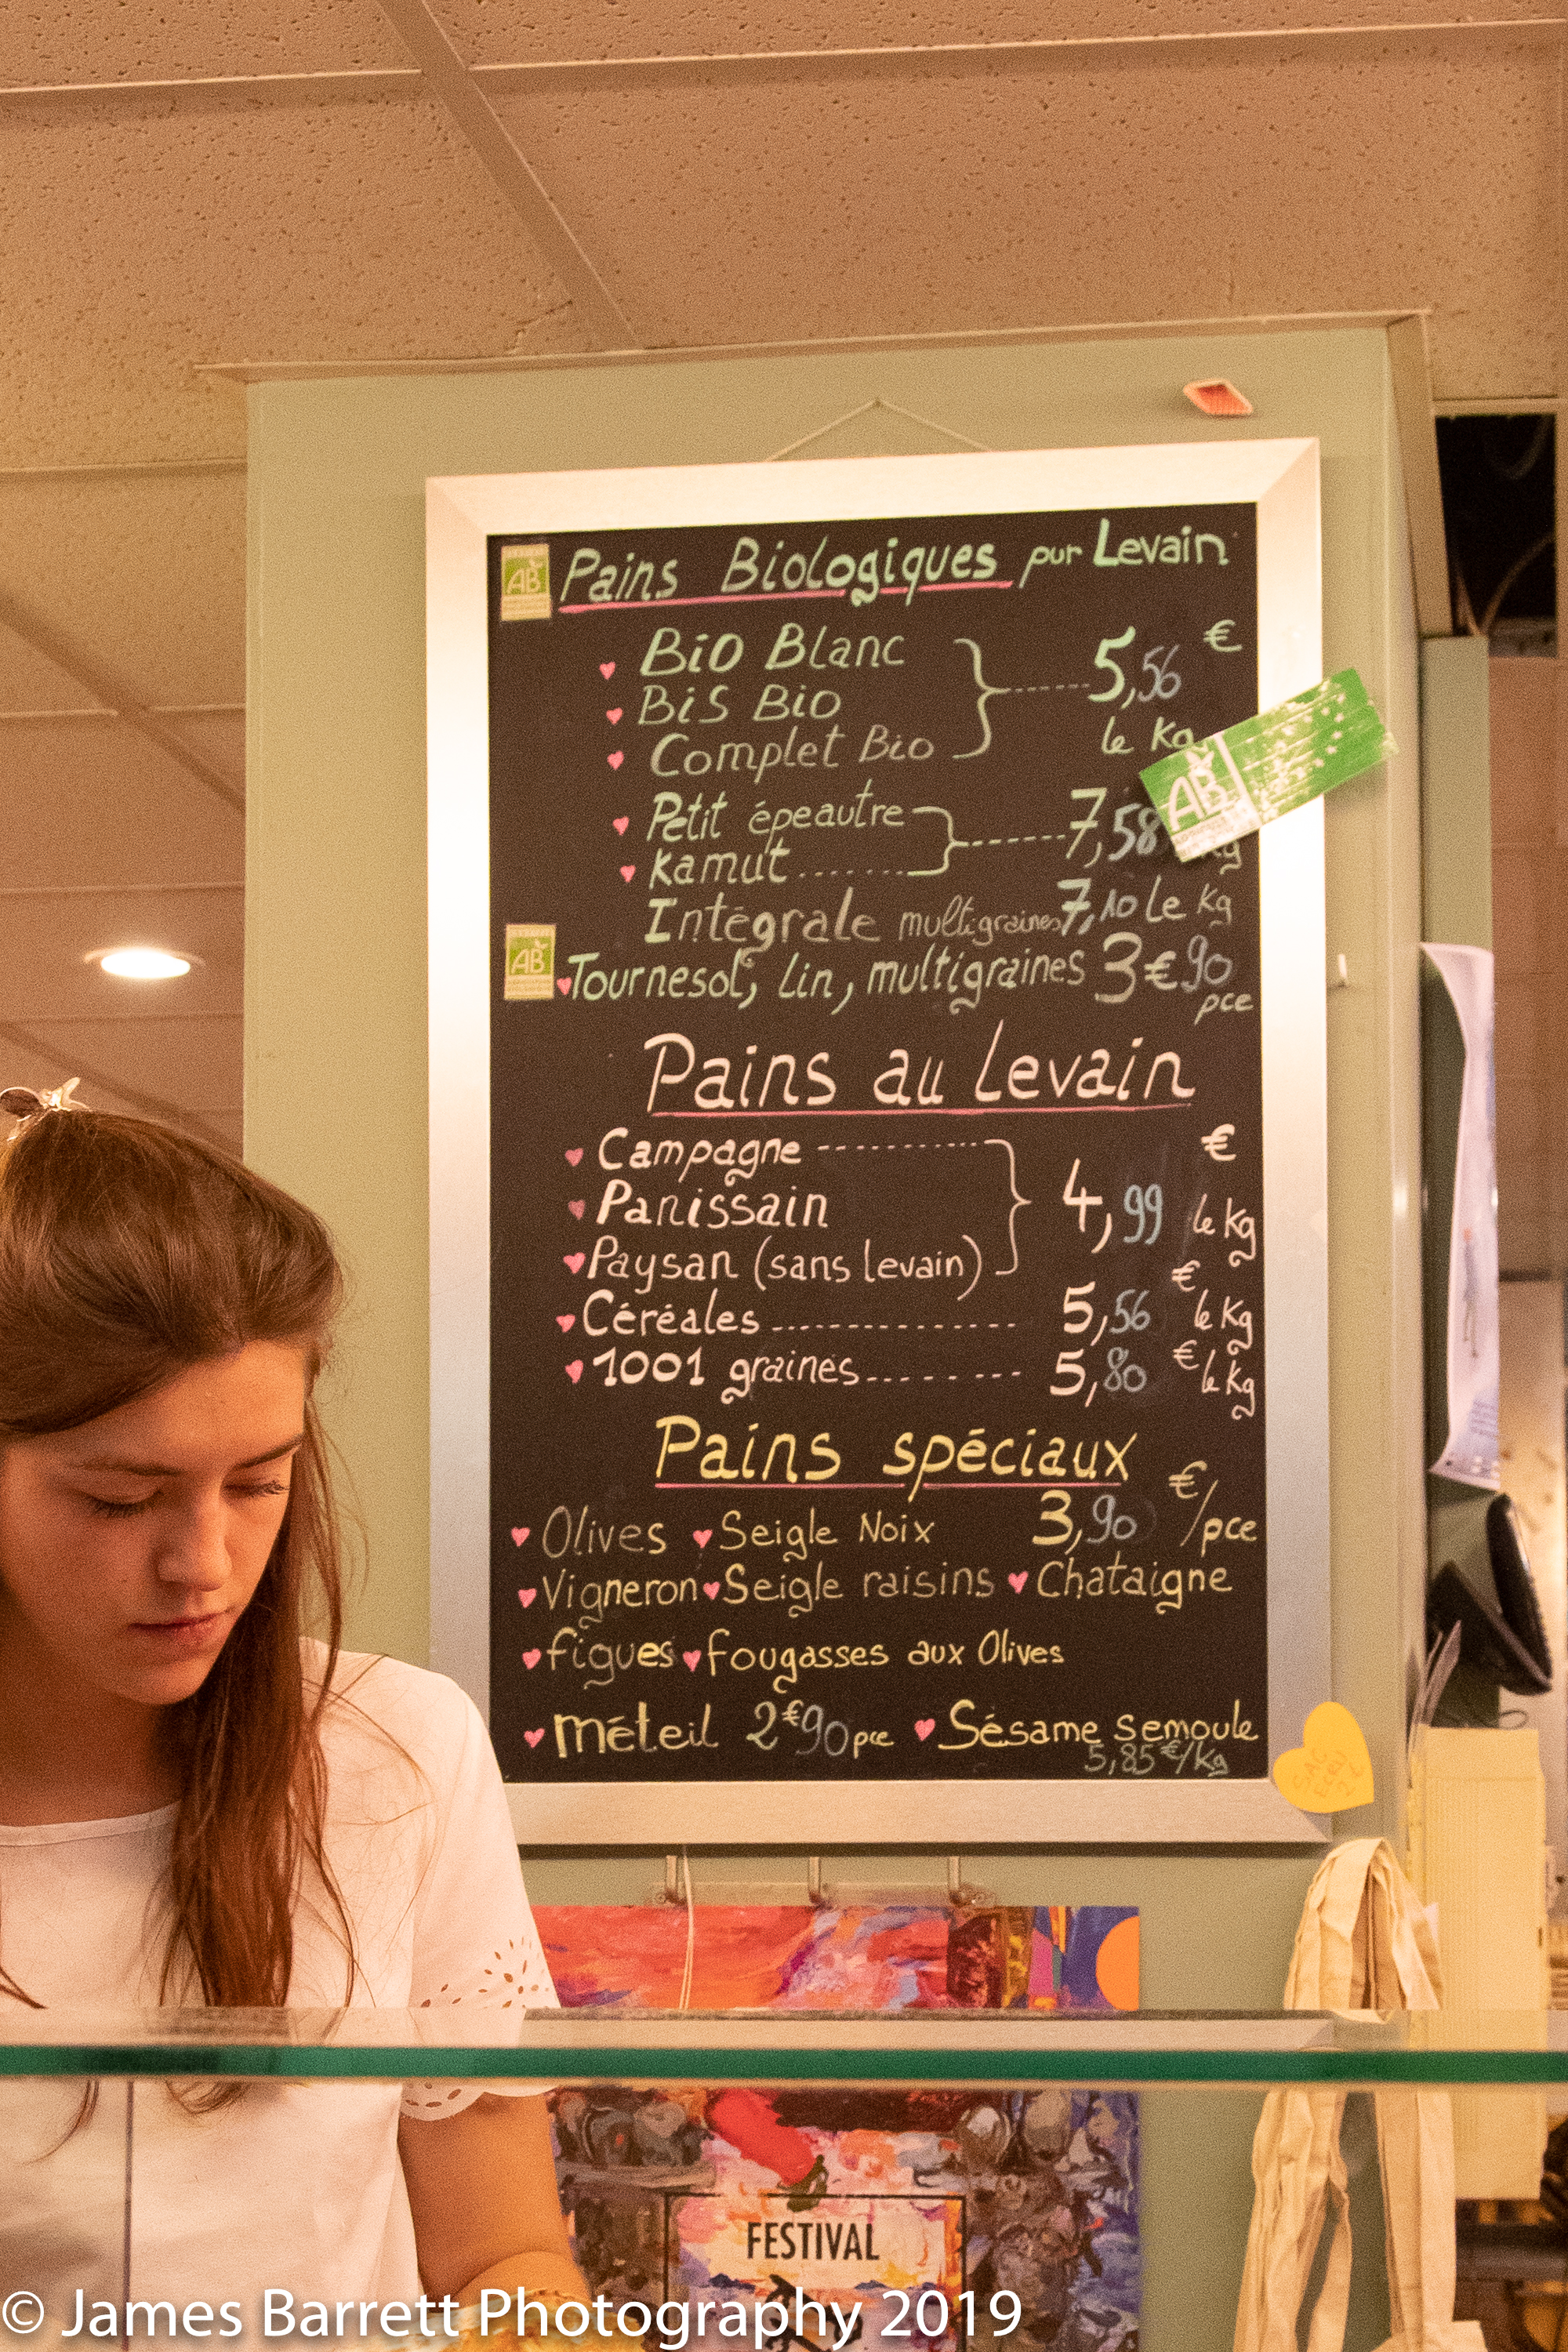 AB Pains Biologiques pur Levain
Bio Blanc
€
BiS Bio
5,56
Complet Bio
le Kg
AB
Petit épeautre
7,58
Kamut ....... Kg
Intégrale multigraines 7,10 le Kg
AB Tournesol, Lin, multigraines 3€90
pce
Pains au Levain
Campagne
€
Panissain 4,99 le Kg
Paysan (sans levain)
Céréales .............. 5,56 € le Kg
1001 graines ........ 5,80 € le Kg
Pains spéciaux
Olives Seigle Noix 3,90 €/pce
Vigneron Seigle raisins Chataigne
figues fougasses aux Olives
méteil 2€90 pce Sésame semoule
5,85 €/Kg
SAC
ECRU
2€
FESTIVAL
© James Barrett Photography 2019